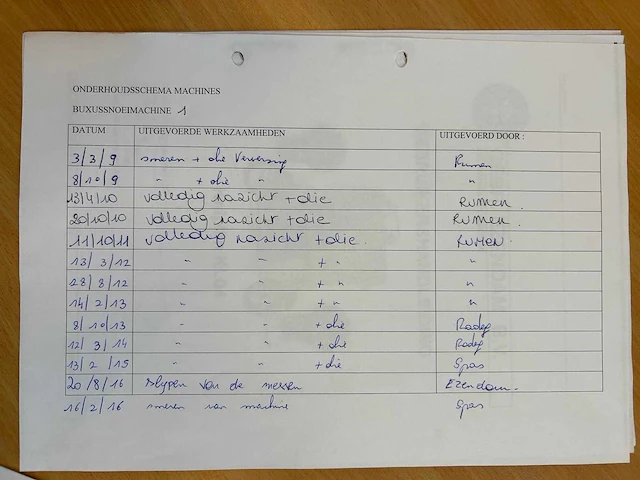 ONDERHOUDSSCHEMA MACHINES
BUXUSSNOEIMACHINE 1
DATUM UITGEVOERDE WERKZAAMHEDEN UITGEVOERD DOOR :
3/3/9 smeren + olie Verversing Rumen
8/10/9 " + olie " "
13/4/10 volledig nazicht + olie RUMEN.
20/10/10 volledig nazicht + olie RUMEN.
11/10/11 volledig nazicht + olie. RUMEN.
13/3/12 " " + " "
28/8/12 " " + " "
14/2/13 " " + " "
8/10/13 " " + olie Radeg
12/3/14 " " + olie Radeg
13/2/15 " " + olie Spas
20/8/16 slypen van de messen Ezendam.
16/2/16 smeren van machine Spas